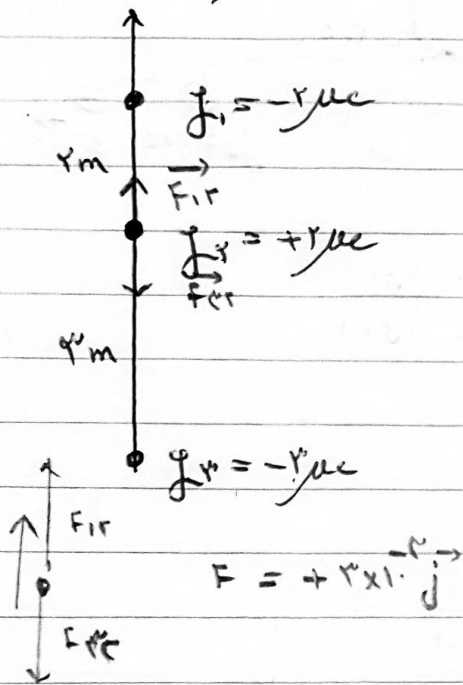 q۱ = -۲μc
۲m
F۱۲
q۲ = +۲μc
F۳۲
۳m
q۳ = -۳μc
F۱۲
F = +۳×۱۰⁻³ j
F۳۲